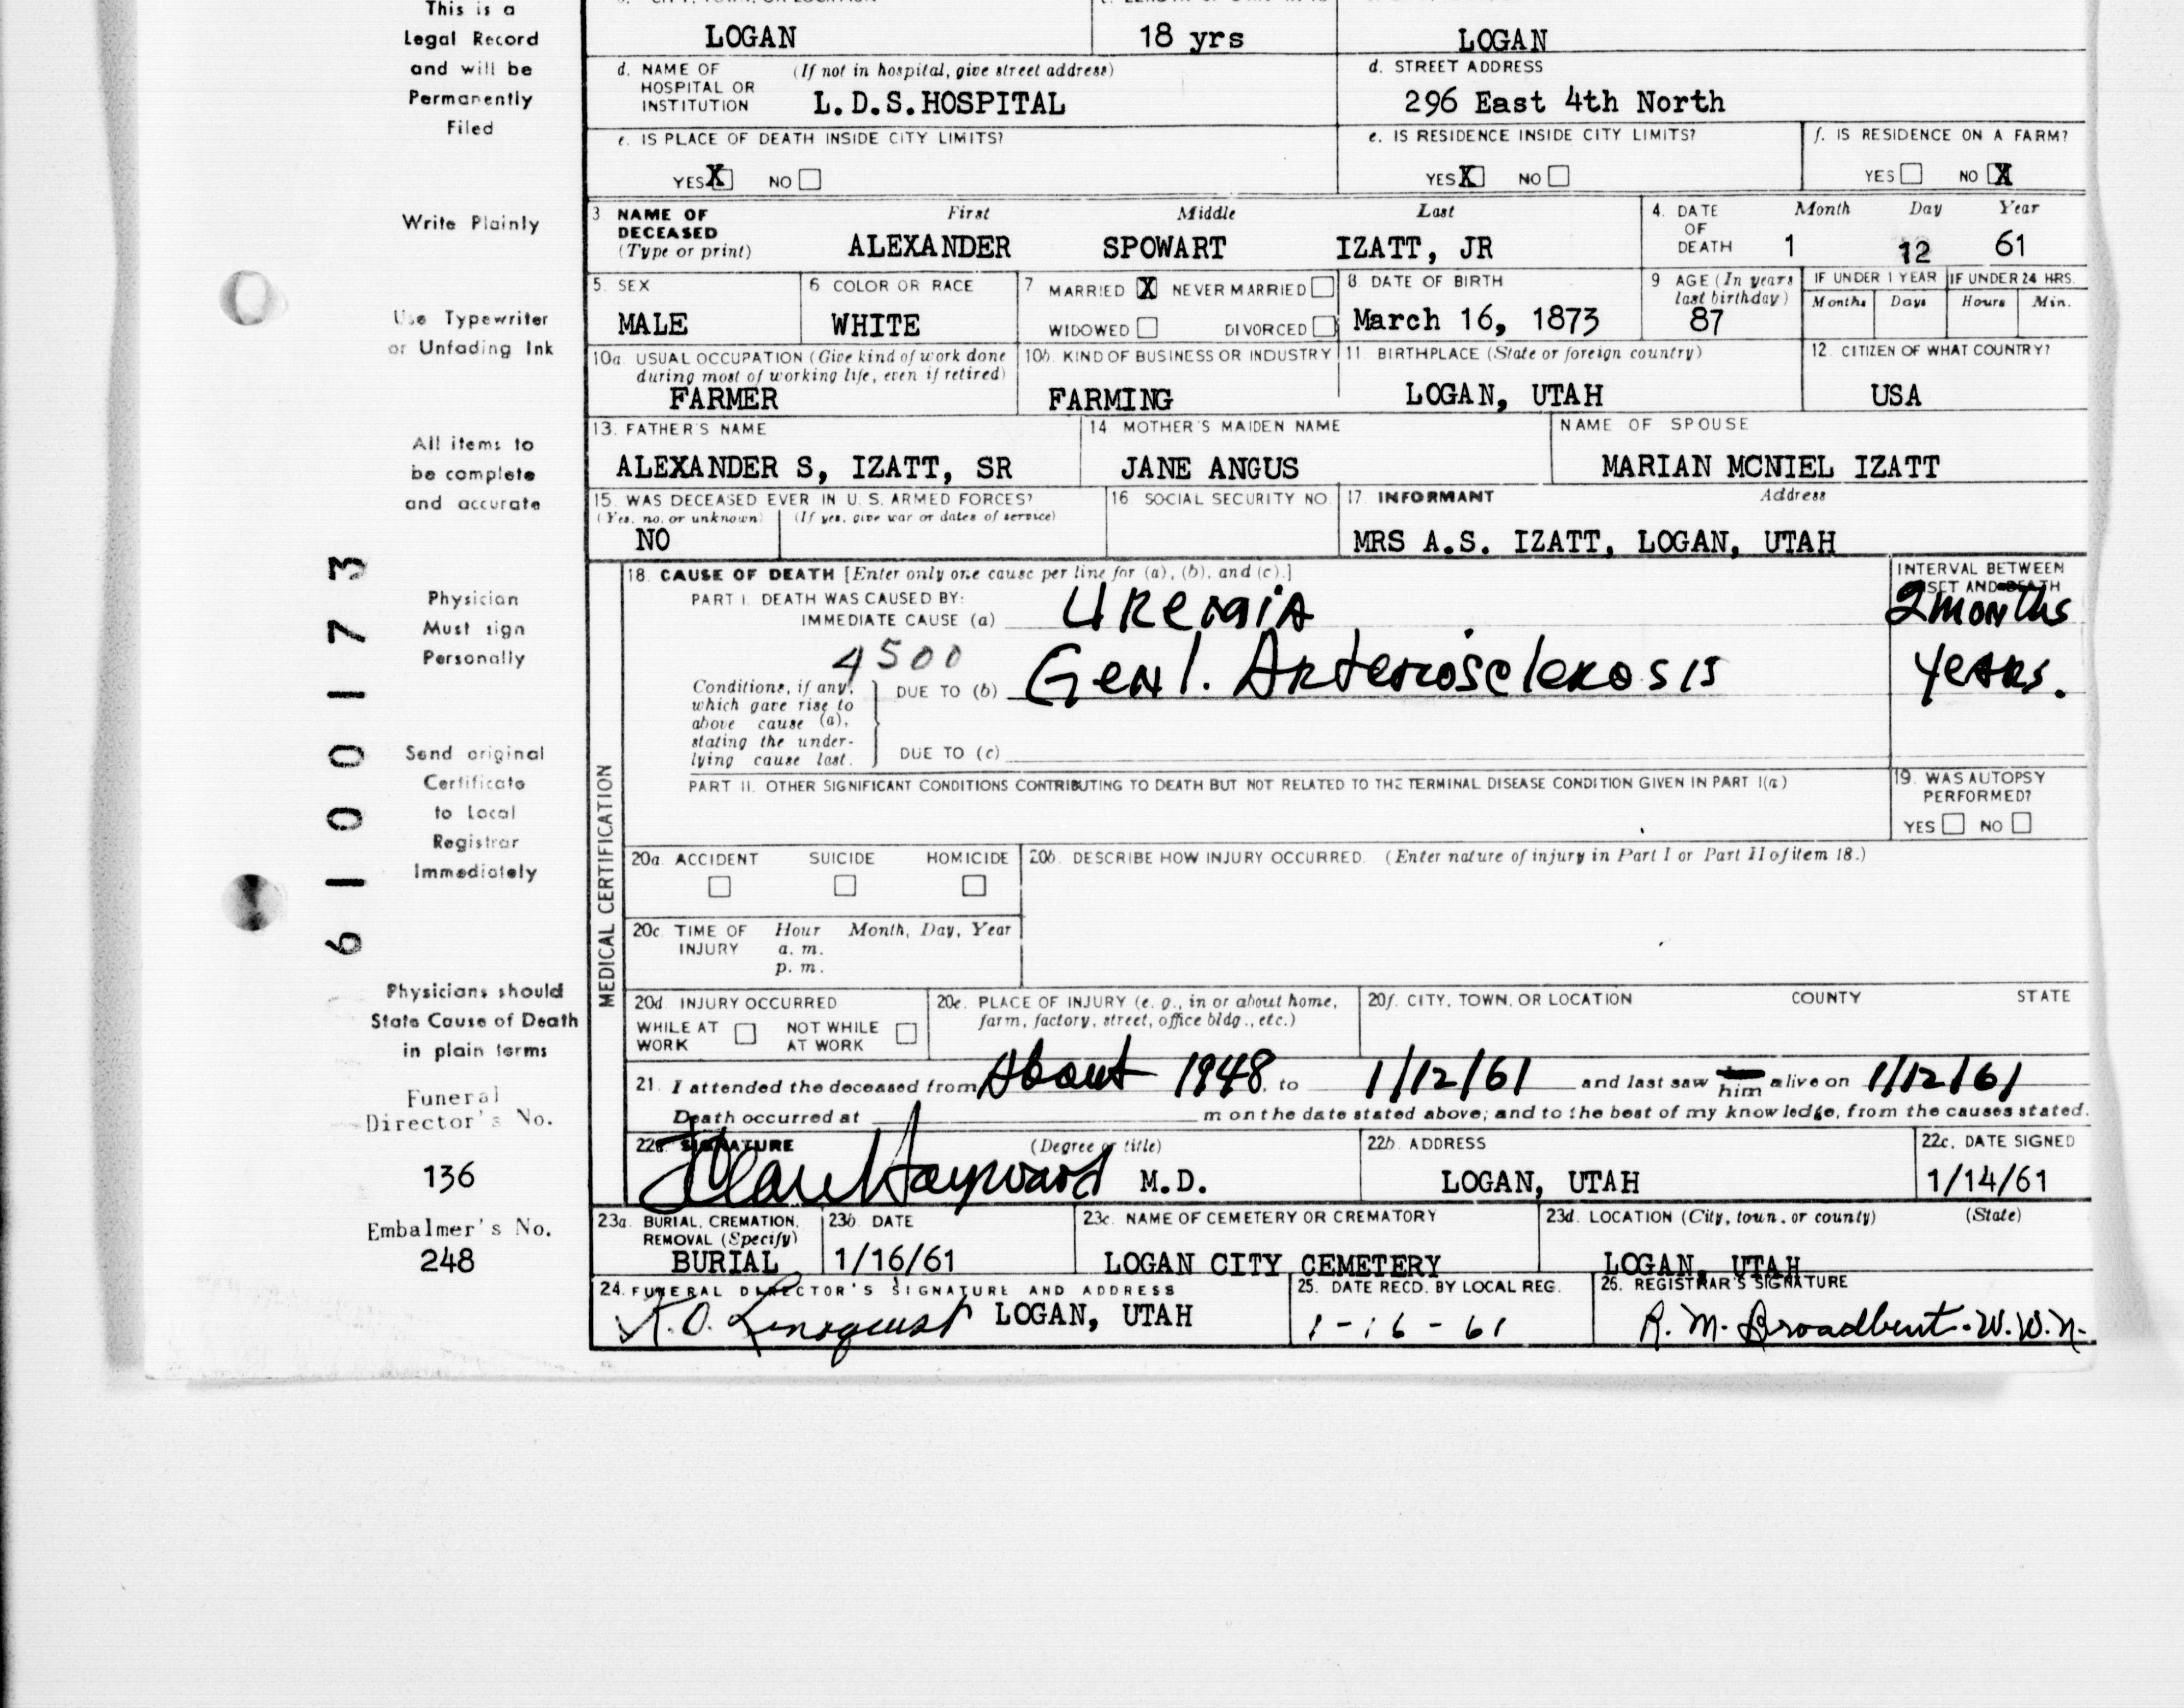 This is a
Legal Record
and will be
Permanently
Filed
LOGAN 18 yrs LOGAN
d. NAME OF HOSPITAL OR INSTITUTION (If not in hospital, give street address)
L.D.S.HOSPITAL
d. STREET ADDRESS
296 East 4th North
e. IS PLACE OF DEATH INSIDE CITY LIMITS?
YES X NO
e. IS RESIDENCE INSIDE CITY LIMITS?
YES X NO
f. IS RESIDENCE ON A FARM?
YES NO X
Write Plainly
3 NAME OF DECEASED (Type or print)
First Middle Last
ALEXANDER SPOWART IZATT, JR
4. DATE OF DEATH Month Day Year
1 12 61
Use Typewriter
or Unfading Ink
5. SEX
MALE
6 COLOR OR RACE
WHITE
7 MARRIED X NEVER MARRIED
WIDOWED DIVORCED
8. DATE OF BIRTH
March 16, 1873
9 AGE (In years last birthday)
87
IF UNDER 1 YEAR IF UNDER 24 HRS.
Months Days Hours Min.
10a. USUAL OCCUPATION (Give kind of work done during most of working life, even if retired)
FARMER
10b. KIND OF BUSINESS OR INDUSTRY
FARMING
11. BIRTHPLACE (State or foreign country)
LOGAN, UTAH
12. CITIZEN OF WHAT COUNTRY?
USA
All items to
be complete
and accurate
13. FATHER'S NAME
ALEXANDER S, IZATT, SR
14 MOTHER'S MAIDEN NAME
JANE ANGUS
NAME OF SPOUSE
MARIAN MCNIEL IZATT
15. WAS DECEASED EVER IN U. S. ARMED FORCES?
(Yes, no, or unknown) (If yes, give war or dates of service)
NO
16 SOCIAL SECURITY NO.
17. INFORMANT Address
MRS A.S. IZATT, LOGAN, UTAH
61 00173
Physician
Must sign
Personally
MEDICAL CERTIFICATION
18. CAUSE OF DEATH [Enter only one cause per line for (a), (b), and (c).]
PART I. DEATH WAS CAUSED BY:
IMMEDIATE CAUSE (a) Uremia
INTERVAL BETWEEN ONSET AND DEATH
2 months
4500
Conditions, if any, which gave rise to above cause (a), stating the underlying cause last.
DUE TO (b) Genl. Arteriosclerosis
years.
DUE TO (c)
Send original
Certificate
to Local
Registrar
Immediately
PART II. OTHER SIGNIFICANT CONDITIONS CONTRIBUTING TO DEATH BUT NOT RELATED TO THE TERMINAL DISEASE CONDITION GIVEN IN PART I(a)
19. WAS AUTOPSY PERFORMED?
YES NO
20a. ACCIDENT SUICIDE HOMICIDE
20b. DESCRIBE HOW INJURY OCCURRED. (Enter nature of injury in Part I or Part II of item 18.)
20c. TIME OF INJURY Hour Month, Day, Year
a. m.
p. m.
Physicians should
State Cause of Death
in plain terms
20d. INJURY OCCURRED
WHILE AT WORK NOT WHILE AT WORK
20e. PLACE OF INJURY (e. g., in or about home, farm, factory, street, office bldg., etc.)
20f. CITY, TOWN, OR LOCATION COUNTY STATE
21. I attended the deceased from About 1948, to 1/12/61 and last saw him alive on 1/12/61
Death occurred at m on the date stated above; and to the best of my knowledge, from the causes stated.
Funeral
Director's No.
136
22a. SIGNATURE (Degree or title)
Hayward M.D.
22b. ADDRESS
LOGAN, UTAH
22c. DATE SIGNED
1/14/61
Embalmer's No.
248
23a. BURIAL, CREMATION, REMOVAL (Specify)
BURIAL
23b. DATE
1/16/61
23c. NAME OF CEMETERY OR CREMATORY
LOGAN CITY CEMETERY
23d. LOCATION (City, town, or county) (State)
LOGAN, UTAH
24. FUNERAL DIRECTOR'S SIGNATURE AND ADDRESS
LOGAN, UTAH
25. DATE RECD. BY LOCAL REG.
1-16-61
26. REGISTRAR'S SIGNATURE
R. M. Broadbent - W.W.N.